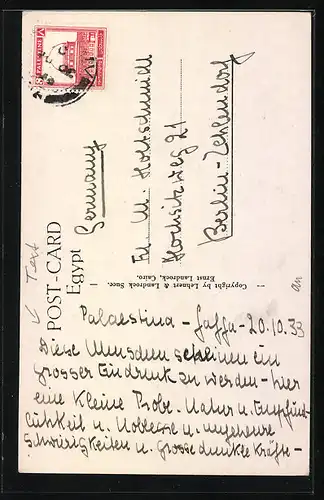 PALESTINE
Text
POST-CARD
Egypt
Germany
Frl. M. Holtschmidt
Hochsitzweg 21
Berlin-Zehlendorf
Copyright by Lehnert & Landrock Succ.
Ernst Landrock, Cairo.
Palaestina - Jaffa - 20.10.33
Diese Menschen scheinen ein
grosser Eindruck zu werden - hier
eine kleine Probe. Natur u. Empfind-
lichkeit u. Noblesse u. ungeheure
Schwierigkeiten u. Grosse dunkle Kräfte -